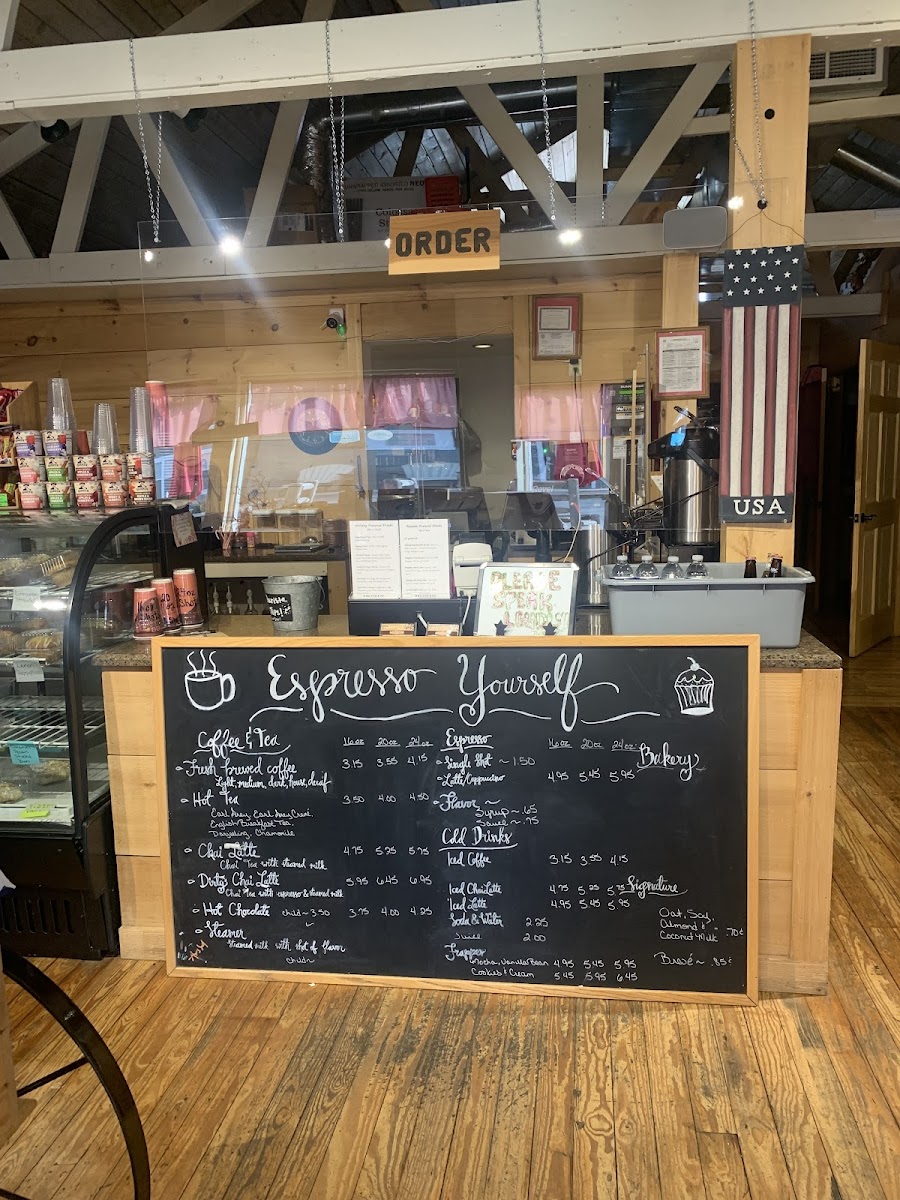 ORDER
USA
PLEASE
SPEAK
Espresso Yourself
Coffee & Tea 16oz 20oz 24oz
Fresh brewed coffee 3.15 3.55 4.15
Light, medium, dark, house, decaf
Hot Tea 3.50 4.00 4.50
Earl Grey, Earl Grey Crème
English Breakfast Tea
Darjeeling, Chamomile
Chai Latte 4.75 5.25 5.75
Chai Tea with steamed milk
Dirty Chai Latte 5.95 6.45 6.95
Chai Tea with espresso & steamed milk
Hot Chocolate child ~ 3.50 3.75 4.00 4.25
Steamer
Steamed milk with shot of flavor
Child ~
Espresso 16oz 20oz 24oz
Single Shot ~ 1.50
Latte/Cappuccino 4.95 5.45 5.95
Flavor ~
Syrup ~ .65
Sauce ~ .75
Cold Drinks
Iced Coffee 3.15 3.55 4.15
Iced Chai Latte 4.75 5.25 5.75
Iced Latte 4.95 5.45 5.95
Soda & Water 2.25
Juice 2.00
Frappes
Mocha, Vanilla Bean 4.95 5.45 5.95
Cookies & Cream 5.45 5.95 6.45
Bakery
Signature
Oat, Soy,
Almond &
Coconut Milk .70¢
Brevé ~ .85¢